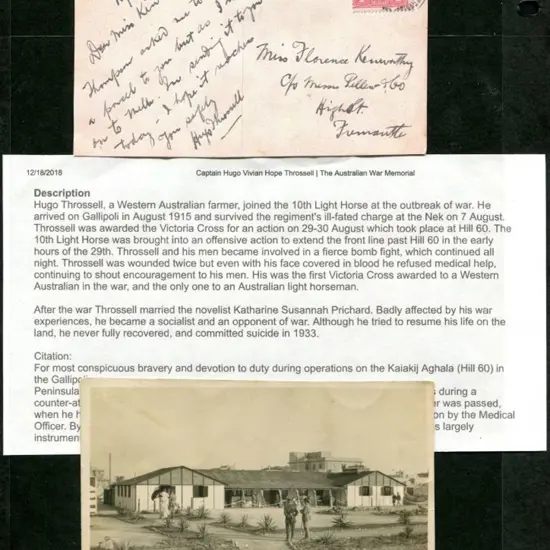 Dear Miss Ken
Thompson asked me to
a parcel to you but as I
on to Melb. I'm sending it to you
today. I hope it reaches
you safely
Hugo Throssell
Miss Florence Kenworthy
C/o Messrs Pellew & Co
High St.
Fremantle
12/18/2018
Captain Hugo Vivian Hope Throssell | The Australian War Memorial
Description
Hugo Throssell, a Western Australian farmer, joined the 10th Light Horse at the outbreak of war. He
arrived on Gallipoli in August 1915 and survived the regiment's ill-fated charge at the Nek on 7 August.
Throssell was awarded the Victoria Cross for an action on 29-30 August which took place at Hill 60. The
10th Light Horse was brought into an offensive action to extend the front line past Hill 60 in the early
hours of the 29th. Throssell and his men became involved in a fierce bomb fight, which continued all
night. Throssell was wounded twice but even with his face covered in blood he refused medical help,
continuing to shout encouragement to his men. His was the first Victoria Cross awarded to a Western
Australian in the war, and the only one to an Australian light horseman.
After the war Throssell married the novelist Katharine Susannah Prichard. Badly affected by his war
experiences, he became a socialist and an opponent of war. Although he tried to resume his life on the
land, he never fully recovered, and committed suicide in 1933.
Citation:
For most conspicuous bravery and devotion to duty during operations on the Kaiakij Aghala (Hill 60) in
the Gallipoli
Peninsula s during a
counter-at er was passed,
when he h on by the Medical
Officer. By s largely
instrument